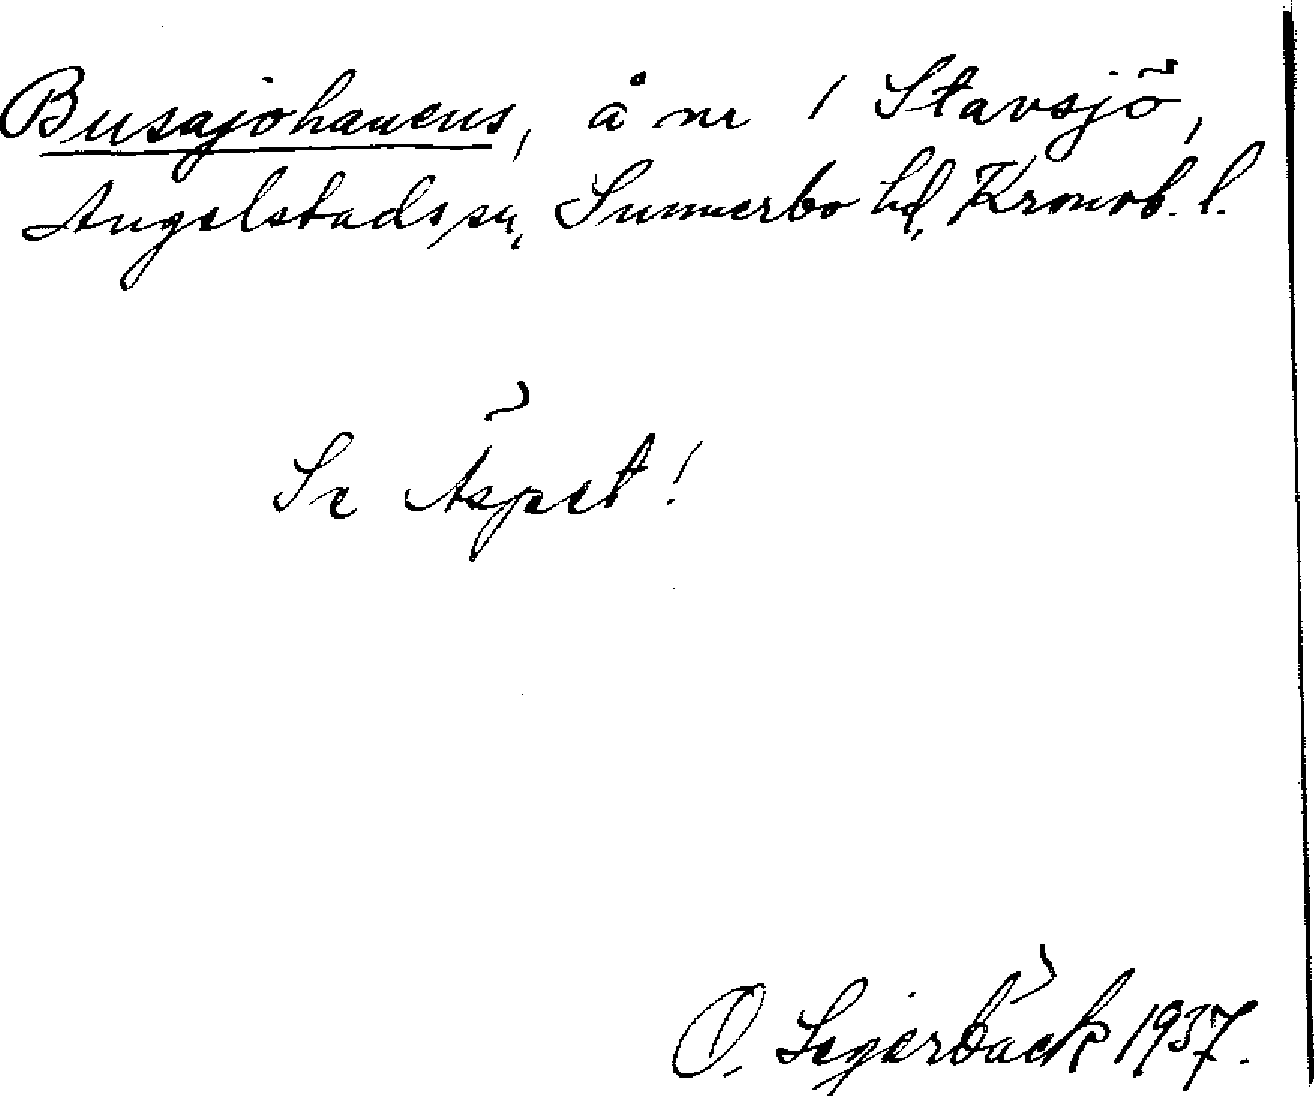 Busajohanens, å nr 1 Stavsjö,
Angelstads sn, Sunnerbo hd, Kronob. l.
Se Äspet!
O. Segerbäck 1937.